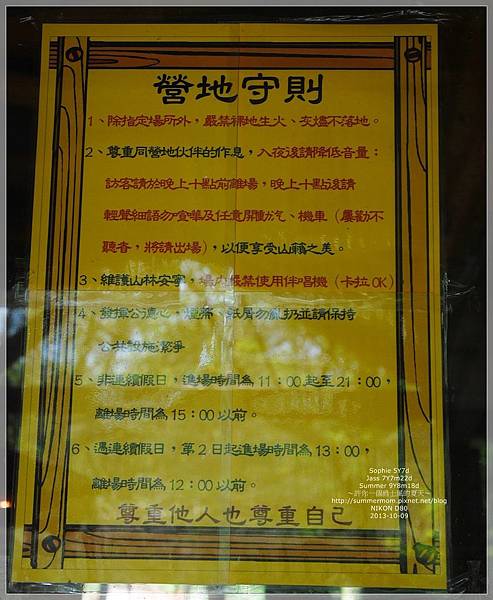 營地守則
1、除指定場所外，嚴禁裸地生火、灰燼不落地。
2、尊重同營地伙伴的作息，入夜後請降低音量：
訪客請於晚上十點前離場，晚上十點後請
輕聲細語勿喧嘩及任意開動汽、機車（屢勸不
聽者，將請出場），以便享受山籟之美。
3、維護山林安寧，場內嚴禁使用伴唱機（卡拉OK）
4、發揮公德心，煙蒂、紙屑勿亂扔並請保持
公共設施潔淨
5、非連續假日，進場時間為11：00起至21：00，
離場時間為15：00以前。
6、遇連續假日，第2日起進場時間為13：00，
離場時間為12：00以前。
尊重他人也尊重自己
Sophie 5Y7d
Jass 7Y7m22d
Summer 9Y8m18d
～許你一個爵士風的夏天～
http://summermom.pixnet.net/blog
NIKON D80
2013-10-09